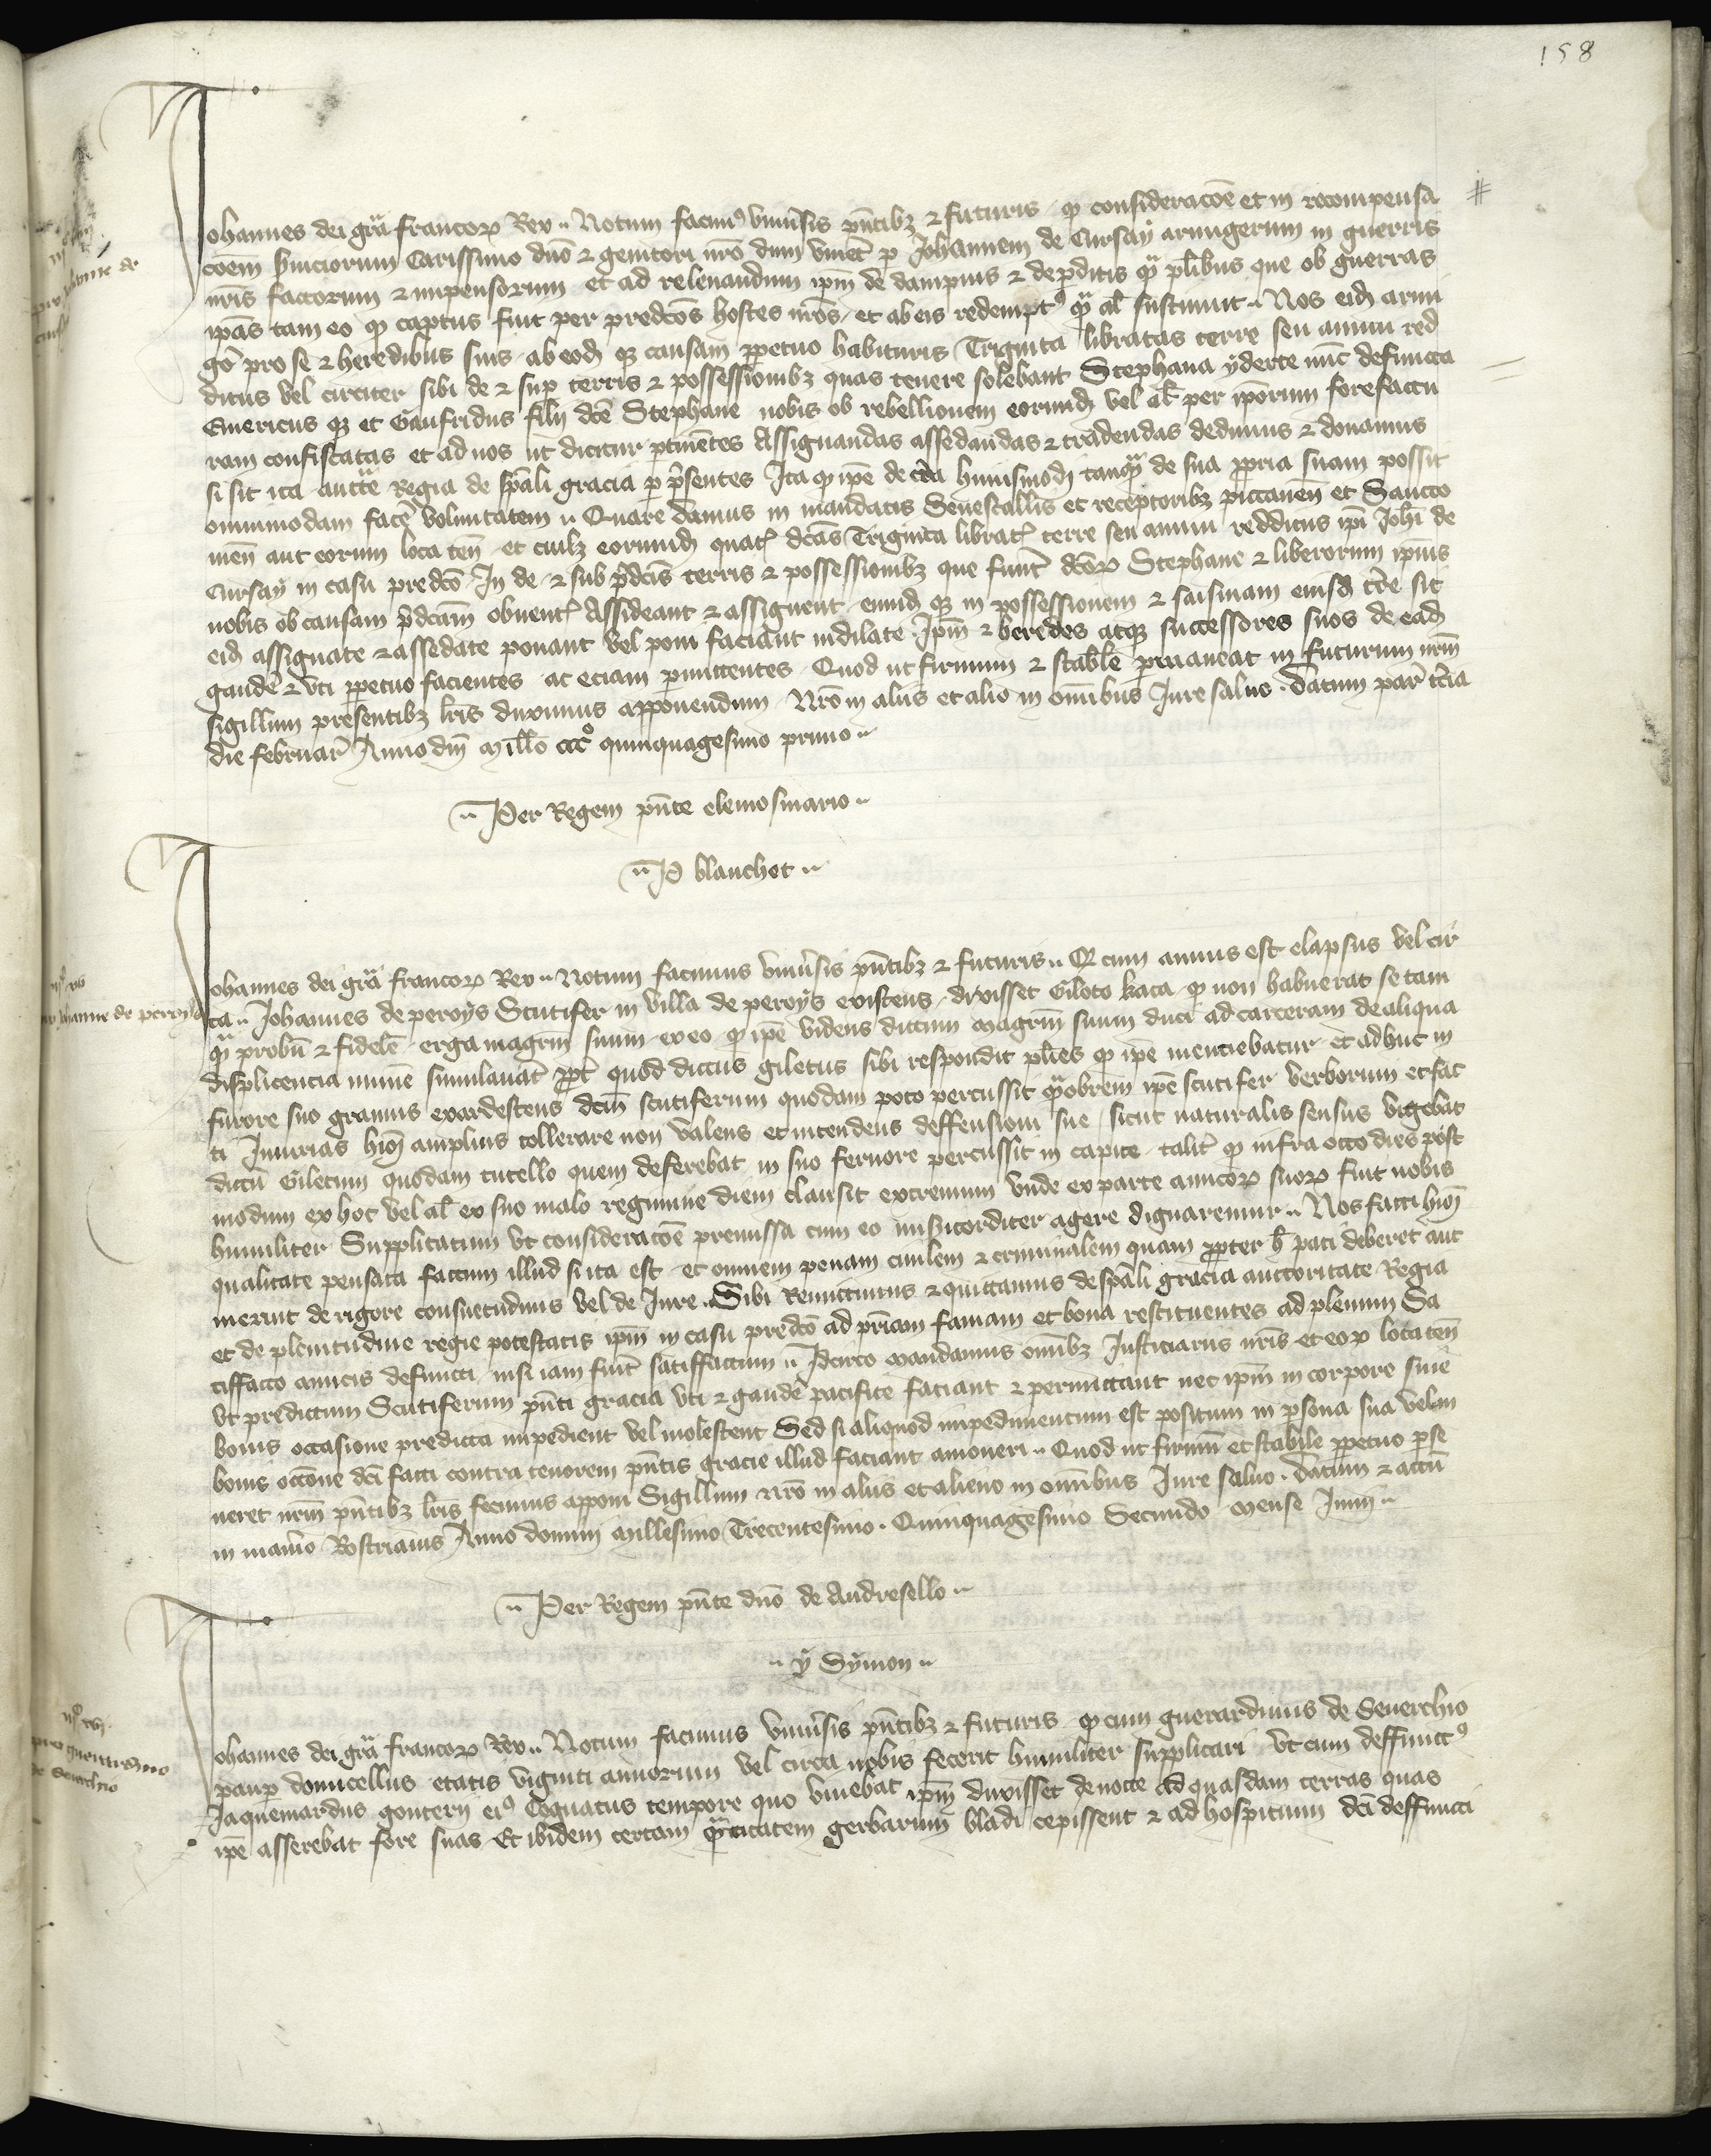 158
Johannes dei gra francoꝝ Rex Notum facimꝰ vniuersis pntibꝫ ⁊ futuris ꝙ consideracoe et in recompensa
coem seruiciorum Carissimo dno ⁊ genitori nro dum viueret p Johannem de Cursay armigerum in guerris
nris factorum ⁊ impensorum et ad releuandum ipm de dampnis ⁊ deperditis qͣ plibus que ob guerras
ipas tam eo ꝙ captus fuit per predcos hostes nros et ab eis redemptꝰ qͣ al sustinuit Nos eid armi
go pro se ⁊ heredibus suis ab eod qꝫ causam ppetuo habituris Triginta libratas terre seu annui red
ditus vel circiter sibi de ⁊ sup terris ⁊ possessionibꝫ quas tenere solebant Stephana yderte nuc defuncta
Emericus qꝫ et Gaufridus filij dce Stephane nobis ob rebellionem eorumd vel al per ipsorum forefactu
ram confiscatas et ad nos ut dicitur ptinentes Assignandas assedandas ⁊ tradendas dedimus ⁊ donamus
si sit ita auctte Regia de spali gracia p psentes Ita ꝙ ipe de terra huiusmodi tanqͣ de sua ppria suam possit
omnimodam facere voluntatem Quare damus in mandatis Senescallis et receptoribꝫ pictauen et Sancto
nen aut eorum loca ten et cuilꝫ eorumd quat dcas Triginta librat terre seu annui redditus ipi Johi de
Cursay in casu predco In de ⁊ sub pdcis terris ⁊ possessionibꝫ que funt dcoꝝ Stephane ⁊ liberorum ipius
nobis ob causam pdcam obuent Assideant ⁊ assignent eumd qꝫ in possessionem ⁊ saisinam eiusd tre sit
eid assignate ⁊ assedate ponant vel poni faciant indilate Ipm ⁊ heredes atqꝫ successores suos de ead
gaudere ⁊ vti ppetuo facientes ac eciam permittentes Quod ut firmum ⁊ stabile permaneat in futurum nrm
sigillum presentibꝫ lris duximus apponendum Nro in aliis et alio in omnibus Jure saluo Datum par tcia
die februar Anno dni millo cccᵒ quinquagesimo primo
Per Regem pnte elemosinario
P blanchet
Johannes dei gra francoꝝ Rex Notum facimus vniuersis pntibꝫ ⁊ futuris Q cum annus est elapsus vel cir
ca Johannes de peroys Scutifer in villa de peroys existens dixisset Giloto kaca ꝙ non habuerat se tam
qͣ probu ⁊ fidele erga magrm suum ex eo ꝙ ipe videns dictum magrm suum duci ad carceram de aliqua
displicencia mime simulauat ppt quod dictus giletus sibi respondit plies ꝙ ipe mentiebatur et adhuc in
furore suo grauius exardescens dcm scutiferum quodam poto percussit qͣobrem ipe scutifer verborum et fac
ti Iniurias hmoi amplius tollerare non valens et intendens deffensioni sue sicut naturalis sensus vigebat
dictu Giletum quodam cutello quem deferebat in suo feruore percussit in capite talit ꝙ infra octo dies post
modum ex hoc vel al ex suo malo regimine diem clausit extremum vnde ex parte amicoꝝ suoꝝ fuit nobis
humiliter Supplicatum vt consideracoe premissa cum eo misericorditer agere dignaremur Nos facti hmoi
qualitate pensata factum illud si ita est et omnem penam ciuilem ⁊ criminalem quam ppter h pati deberet aut
meruit de rigore consuetudinis vel de Jure Sibi Remittimus ⁊ quittamus de spali gracia auctoritate Regia
et de plenitudine regie potestatis ipm in casu predco ad priam famam et bona restituentes ad plenum Sa
tiffacto amicis defuncti nisi iam fuit satiffactum Idcirco mandamus omibꝫ Justiciariis nris et eoꝝ loca ten
vt predictum Scutiferum pnti gracia vti ⁊ gaudere pacifice faciant ⁊ permittant nec ipm in corpore siue
bonis occasione predicta impedient vel molestent Sed si aliquod impedimentum est positum in psona sua vel in
bonis occone dci facti contra tenorem pntis gracie illud faciant amoueri Quod ut firmu et stabile ppetuo pse
ueret nrm pntibꝫ lris fecimus apponi Sigillum nro in aliis et alieno in omibus Jure saluo Datum ⁊ actu
in man'io Rostrianis Anno domini millesimo Trecentesimo Quinquagesimo Secundo mense Junii
Per Regem pnte dno de Andresello
y Symon
Johannes dei gra francoꝝ Rex Notum facimus vniuersis pntibꝫ ⁊ futuris ꝙ cum guerardinus de Seuerchio
paup domicellus etatis viginti annorum vel circa nobis fecerit humiliter supplicari vt cum deffunctꝰ
Jaquemardus gonterij eiꝰ Cognatus tempore quo viuebat ipm duxisset de nocte ad quasdam terras quas
ipe asserebat fore suas Et ibidem certam qͣntitatem gerbarum bladi cepissent ⁊ ad hospitium dci deffuncti